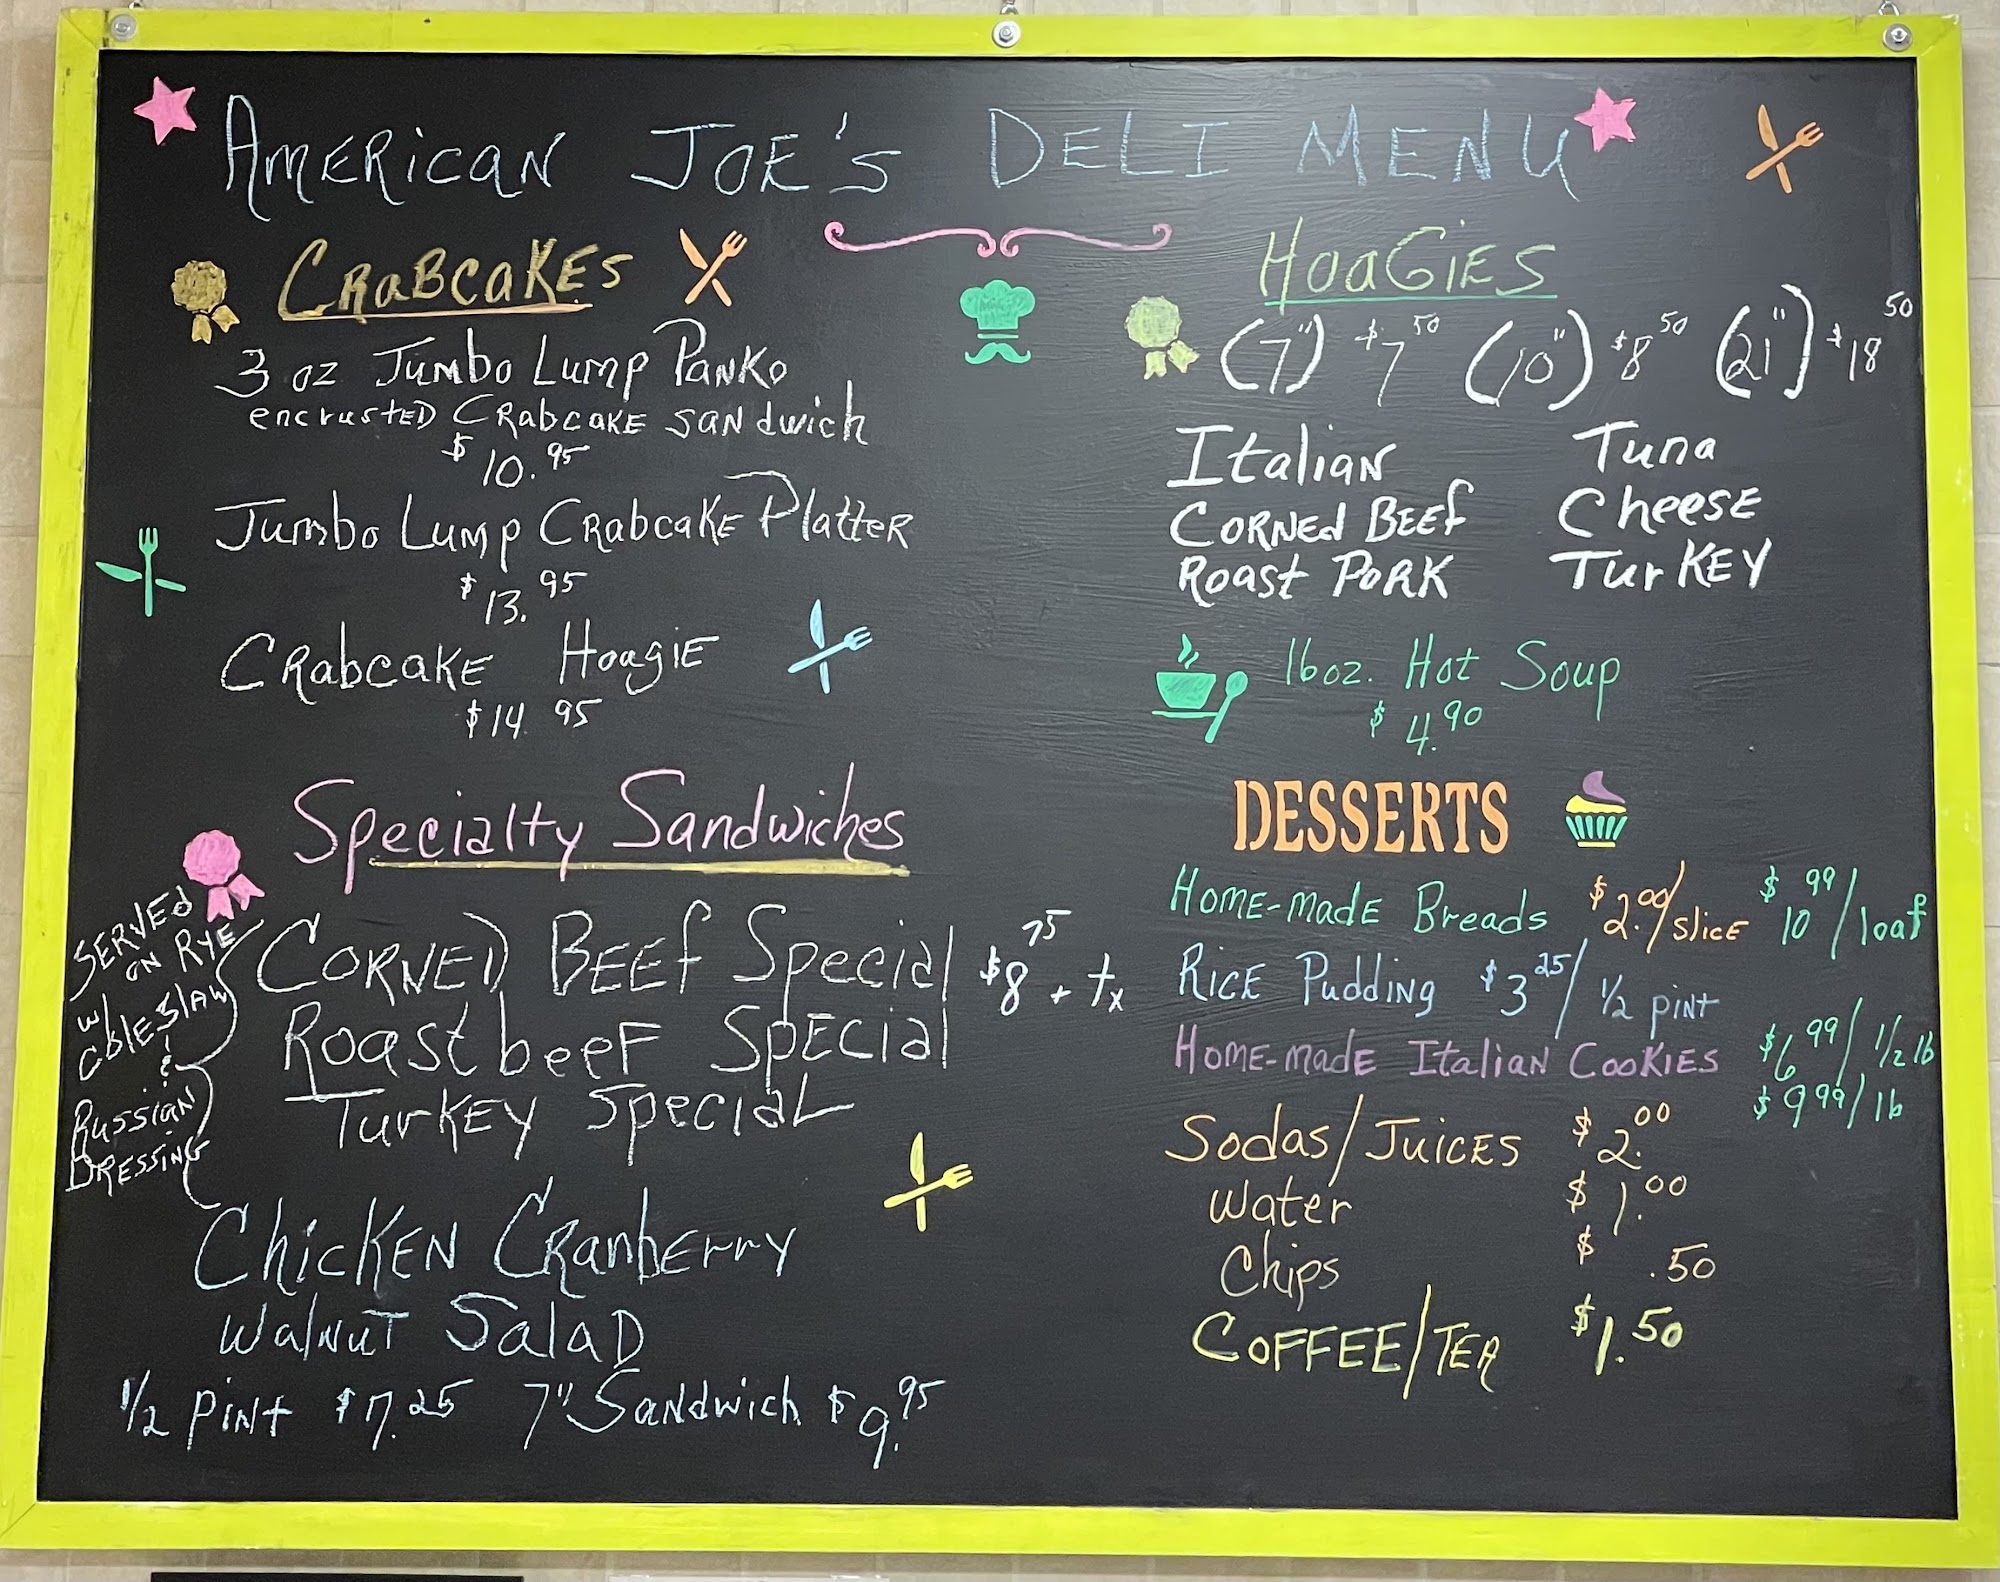 AMERICAN JOE'S DELI MENU
CRABCAKES
3 oz Jumbo Lump Panko
encrusted Crabcake sandwich
$10.95
Jumbo Lump Crabcake Platter
$13.95
Crabcake Hoagie
$14 95
Specialty Sandwiches
Served
on Rye
w/
coleslaw
&
Russian
Dressing
Corned Beef Special $8 75 + tx
Roast beef Special
Turkey Special
Chicken Cranberry
Walnut Salad
1/2 pint $7.25 7" Sandwich $9.95
HOAGIES
(7") $7 50 (10") $8 50 (21") $18 50
Italian Tuna
Corned Beef Cheese
Roast Pork Turkey
16oz. Hot Soup
$4.90
DESSERTS
Home-made Breads $2.00/slice $10 99/loaf
Rice Pudding $3 25/ 1/2 pint
Home-made Italian Cookies $6 99/ 1/2 lb
$9 99/lb
Sodas/Juices $2.00
Water $1.00
Chips $ .50
COFFEE/TEA $1.50